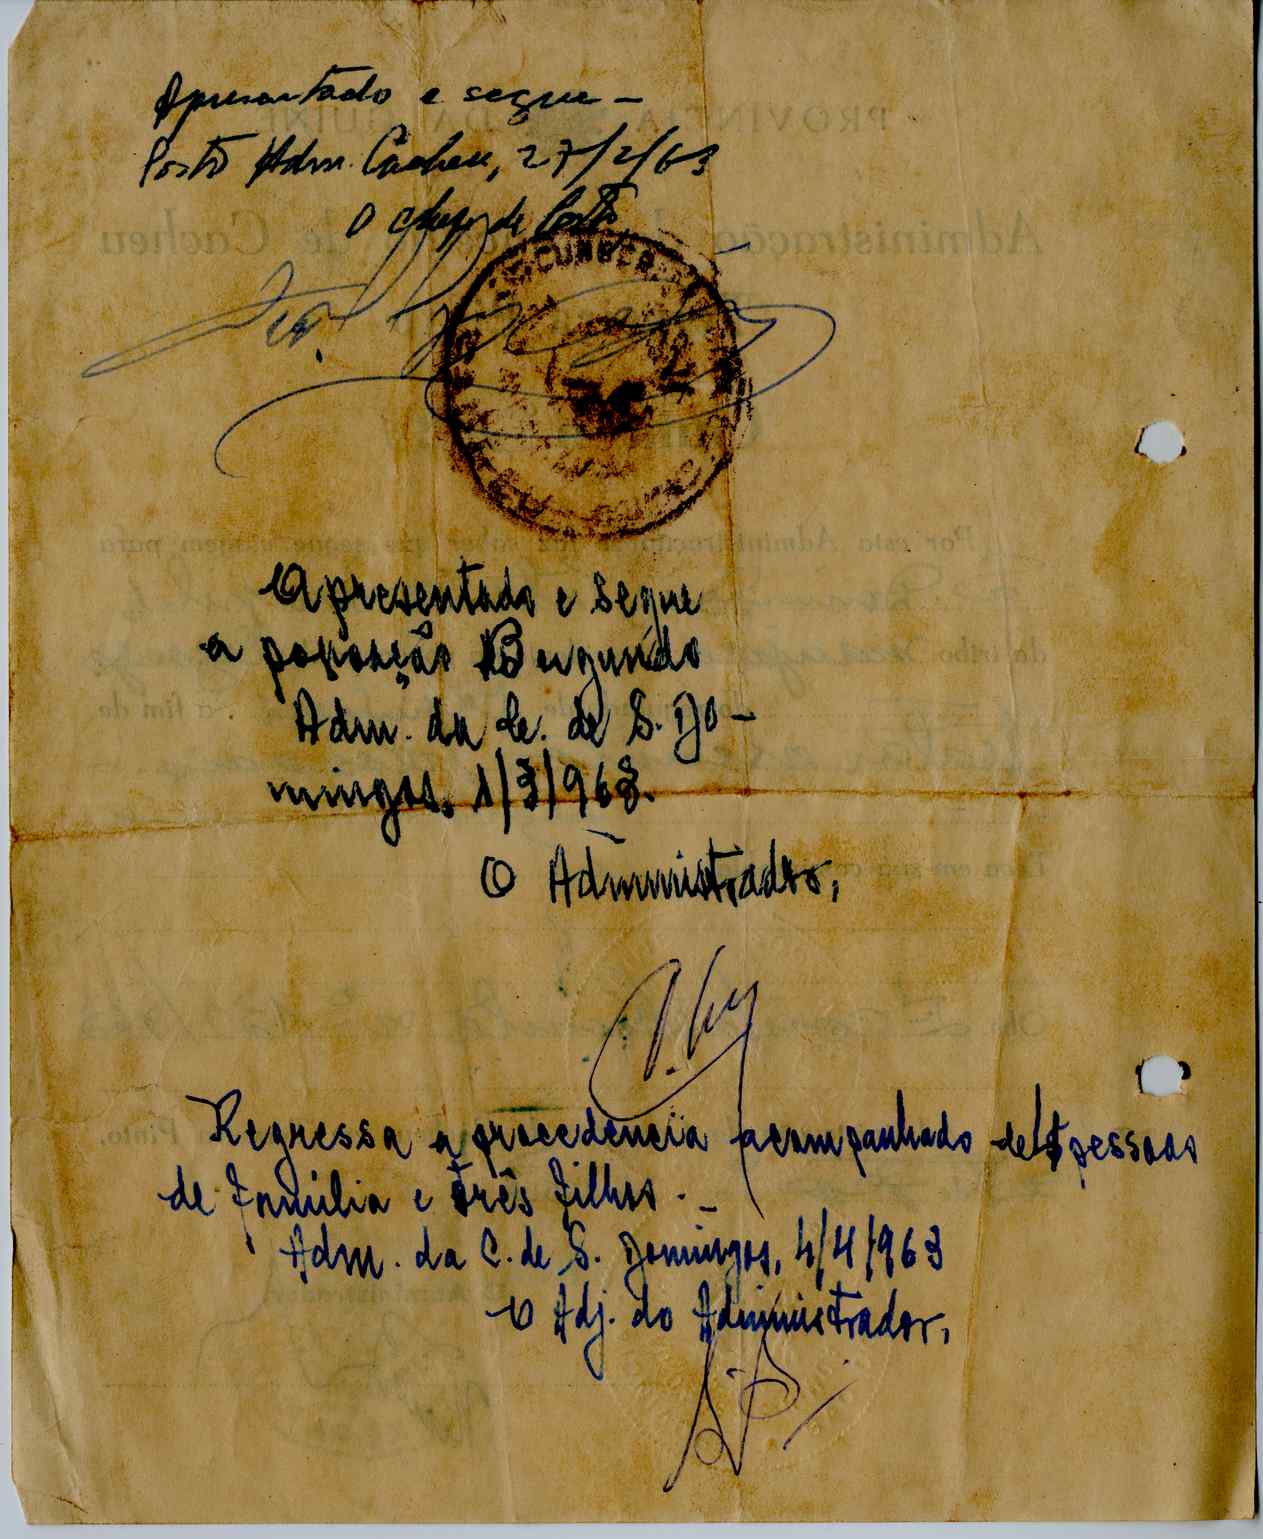 Apresentado e segue –
Posto Adm. Cacheu, 27/2/63
O Chefe de Posto
CIRCUNSCRI
Apresentado e segue
a povoação
Adm. da C. de S. Do–
mingos, 1/3/963.
O Administrador,
Regressa a procedência acompanhado de pessoas
de família e três filhos. –
Adm. da C. de S. Domingos, 4/4/963
O Adj. do Administrador,